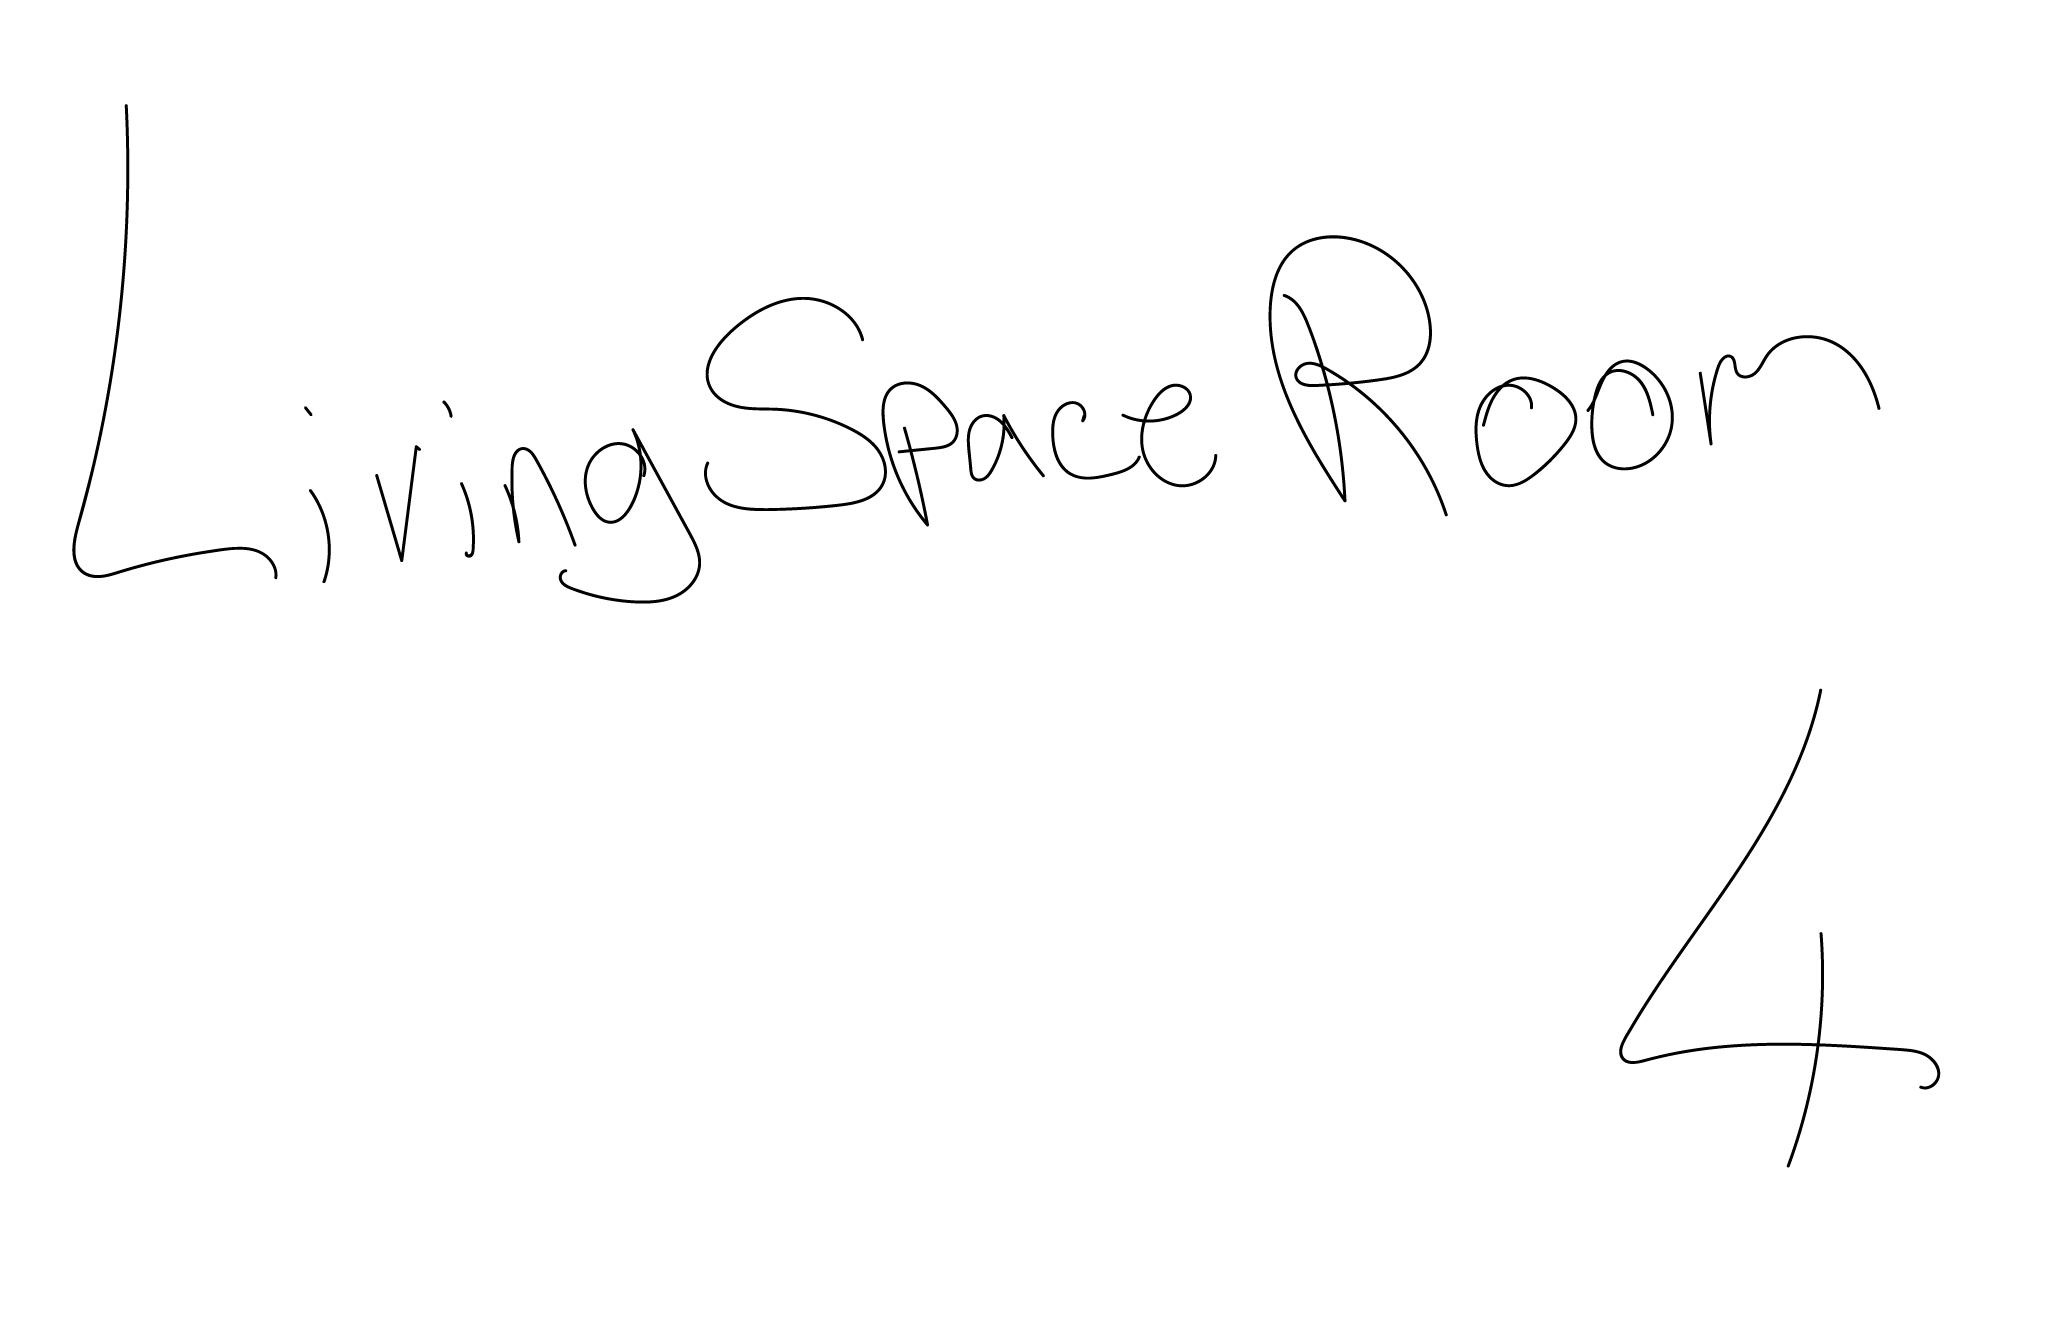 Living Space Room
4